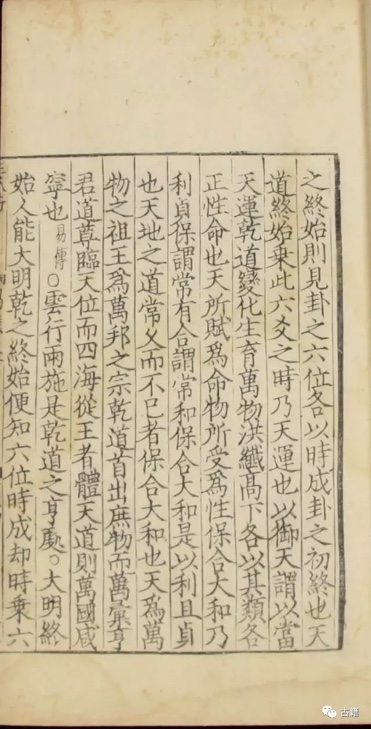 之終始則見卦之六位各以時成卦之初終也天
道終始乘此六爻之時乃天運也以御天謂以當
天運乾道變化生育萬物洪纖髙下各以其類各
正性命也天所賦爲命物所受爲性保合大和乃
利貞保謂常存合謂常和保合大和是以利且貞
也天地之道常乆而不已者保合大和也天爲萬
物之祖王爲萬邦之宗乾道首出庶物而萬彙亨
君道尊臨天位而四海從王者體天道則萬國咸
寧也易傳○雲行雨施是乾道之亨處○大明終
始人能大明乾之終始便知六位時成却時乘六
古籍